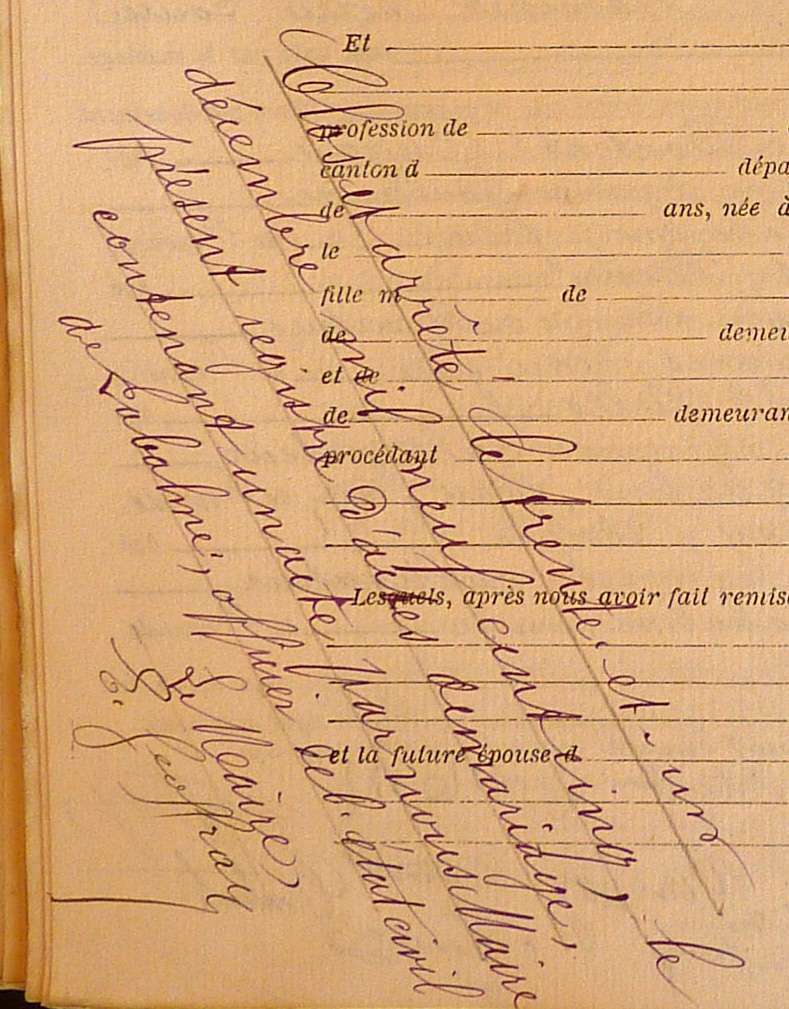 Et
profession de
canton d dépa
de ans, née à
le
fille m de
de demeu
et de
de demeuran
procédant
Lesquels, après nous avoir fait remise
et la future épouse d
Clos et arrêté le trente et un
décembre mil neuf cent cinq, le
présent registre d'actes de mariage,
contenant un acte par nous Maire
de Labalme, officier de l'état civil
Le Maire,
E. Geoffray